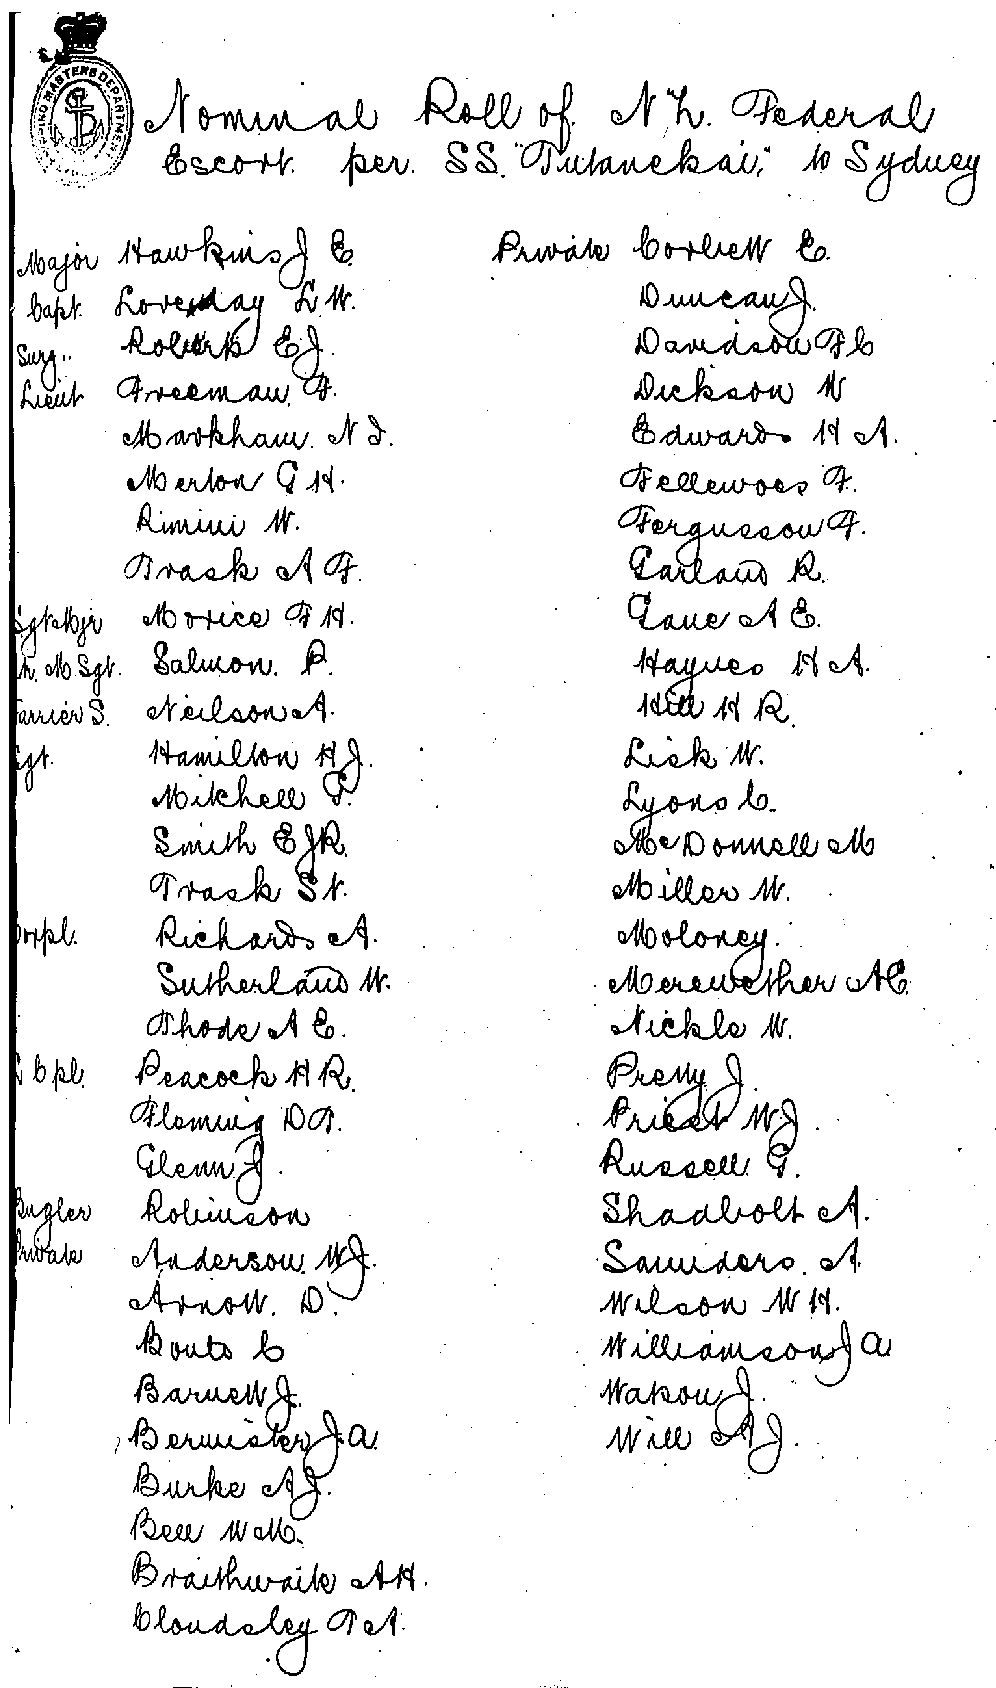 Nominal Roll of N.Z. Federal
Escort. per. SS. "Tutanekai," to Sydney
Major Hawkins J E.
Capt. Loveday L. W.
Surg.. Roberts E J.
Lieut Freeman. F.
Markham. N J.
Merton G H.
Rimini W.
Trask A F.
Sgt Mjr Morice F H.
M. Sgt. Salmon. P.
Farrier S. Neilson A.
Sgt. Hamilton H J.
Mitchell G.
Smith E J R.
Trask S
Corpl. Richards A.
Sutherland W.
Thode A E.
L Cpl. Peacock H R.
Fleming D T.
Glenn J.
Bugler Robinson
Private Anderson. W J.
Arnott. D.
Bouts C
Barnett J.
Bermister J. A.
Burke A J.
Bell W M.
Braithwaite A H.
Cloudsley T A.
Private Corbett E.
Duncan J.
Davidson F C
Dickson W
Edwards H A.
Fellewoes F.
Fergusson F.
Garland R.
Gane A E.
Haynes H A.
Hill H R.
Lisk W.
Lyons C.
McDonnell M
Miller W.
Moloney.
Merewether A E.
Nickle W.
Pretty J.
Priest W J.
Russell. G.
Shadbolt A.
Saunders. A
Wilson W H.
Williamson J A
Watson J.
Will A J.